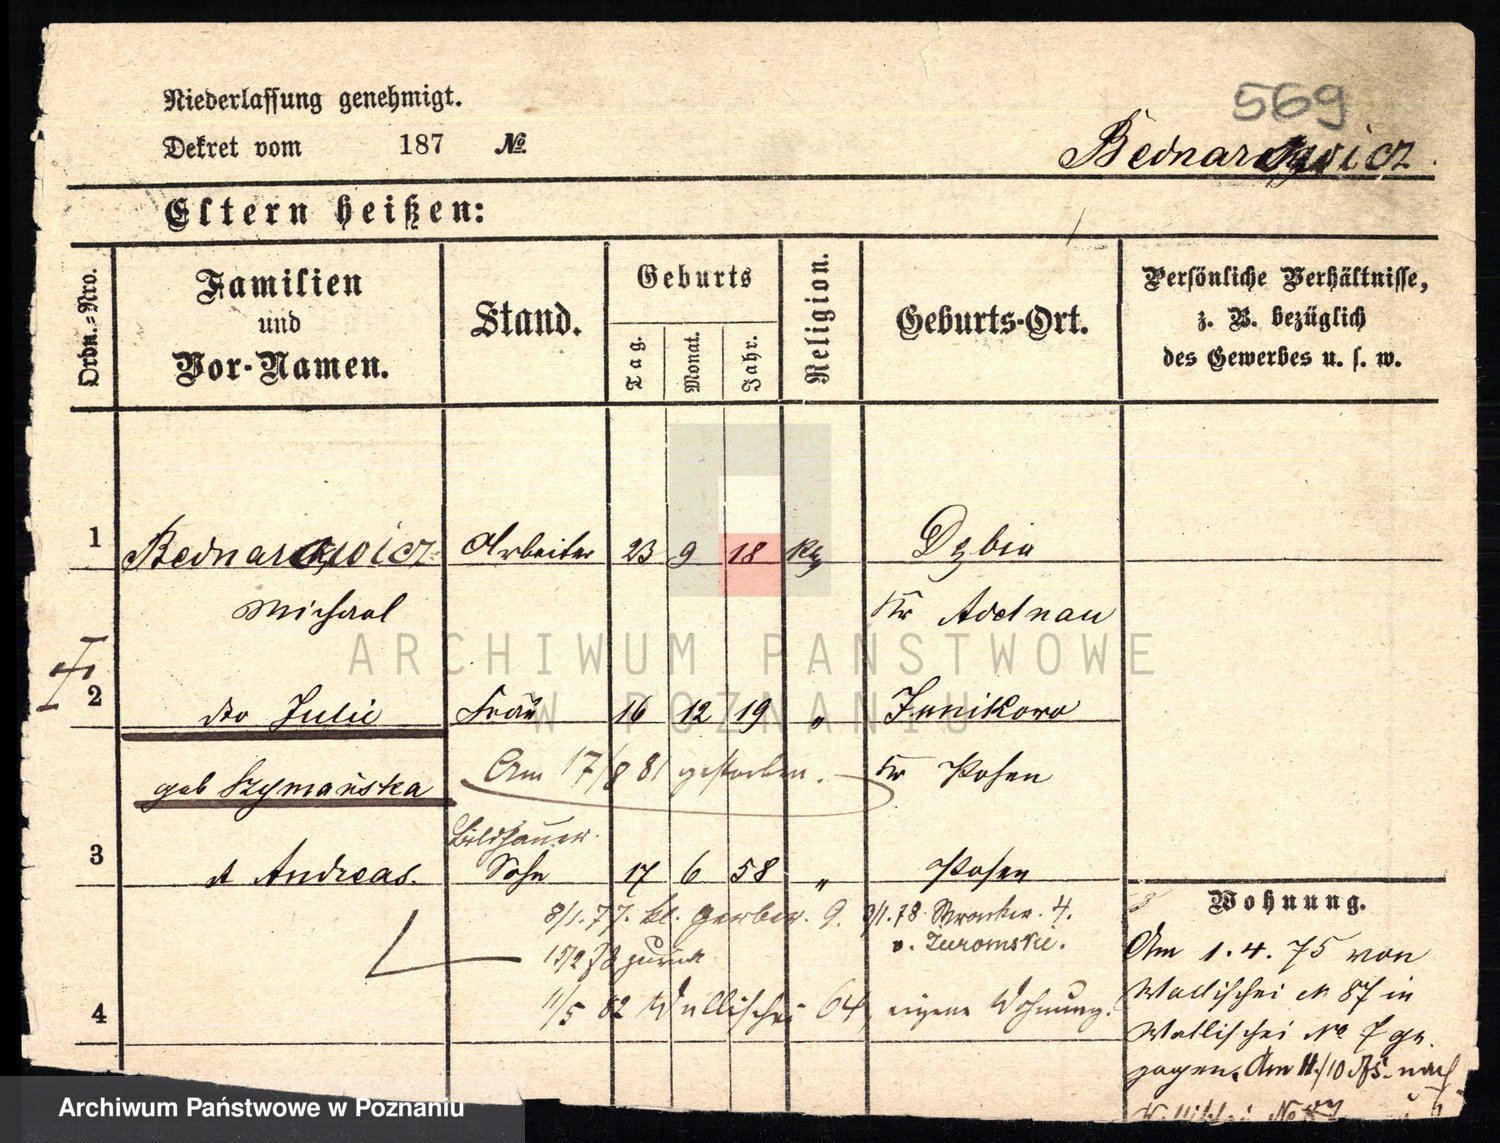 569
Niederlassung genehmigt.
Dekret vom 187 No.
Bednarowicz.
Eltern heißen:
Ordn.-Nro.
Familien und Vor-Namen.
Stand.
Geburts
Tag.
Monat.
Jahr.
Religion.
Geburts-Ort.
Persönliche Verhältnisse,
z. B. bezüglich
des Gewerbes u. s. w.
1 Bednarowicz Arbeiter 23 9 18 Kg
Michael Kr Adelnau
2 dto Julie Frau 16 12 19 " Junikowo
geb Szymańska Am 17/8 81 gestorben. Kr Posen
Bildhauer.
3 d Andreas. Sohn 17 6 58 " Posen
8/1.77. kl. Gerber. 9. 78 4.
zurück v. Zuromski.
4 11/5 82 Wallischei 64, eigene Wohnung.
Wohnung.
Am 1.4.75 von
Wallischei 87 in
Wallischei No 7 ge
zogen. Am 11/10 75 nach
Wallischei No 87
ARCHIWUM PAŃSTWOWE
W POZNANIU
Archiwum Państwowe w Poznaniu